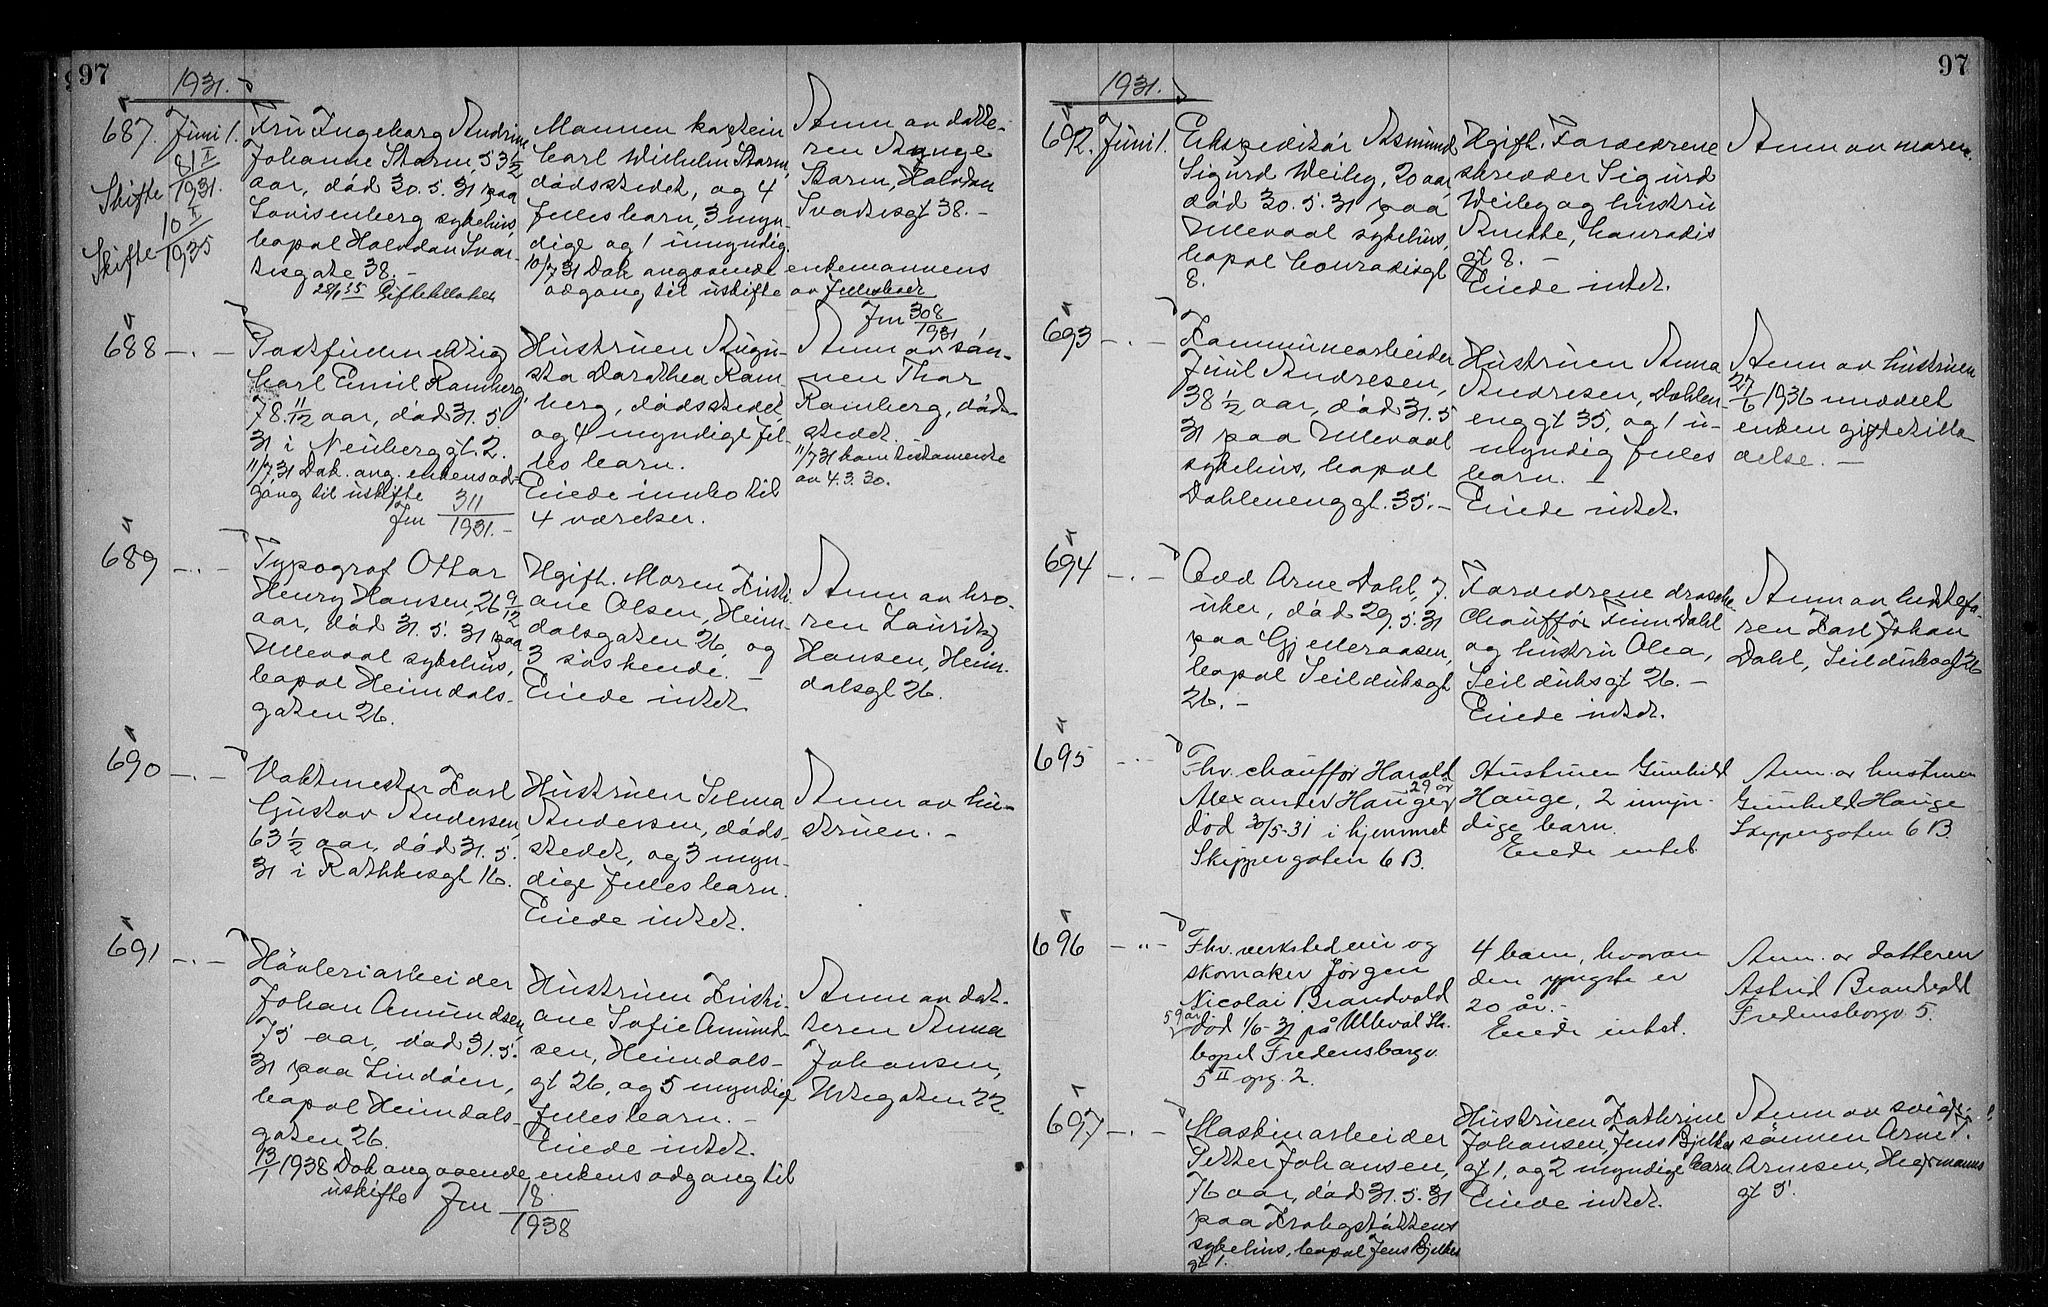 97
1931.
687. Juni 1.
81 I
Skifte 1931.
10 I
Skifte 1935
Fru Ingeborg Andrine
Johanne Storm, 53 1/2
aar, död 30.5.31 paa
Lovisenberg sykehus,
bopæl Halvdan Svar-
tesgate 38. -
Mannen kaptein
Carl Wilhelm Storm,
dödsstedet, og 4
fælles barn, 3 myn-
dige og 1 umyndig.
10/7 31 Dok angaaende enkemannens
adgang til uskifte av fællesboet
Jnr 308/1931
Anm av datte-
ren Aagage
Storm, Halvdan
Svartesgt 38. -
688 -.-
Postfuldmektig
Carl Emil Ramberg,
78 11/12 aar, död 31.5.
31 i Neuberggt. 2.
11/7.31 Dok. ang. enkens ad-
gang til uskifte
Jnr 311/1931. -
Hustruen Augu-
sta Dorothea Ram-
berg, dödsstedet,
og 4 myndige fæl-
les barn.
Eiede innbo til
4 værelser.
Anm av sön-
nen Thor
Ramberg, döds-
stedet.
11/7 31 kom testamente
av 4.3.30.
689 -.-
Typograf Ottar
Henry Hansen, 26 9/12
aar, död 31.5.31 paa
Ullevaal sykehus,
bopæl Heimdals-
gaten 26.
Ugift. Moren Kristi-
ane Olsen, Heim-
dalsgaten 26, og
3 söskende. -
Eiede intet
Anm av bro-
ren Lauritz
Hansen, Heim-
dalsgt 26.
690 -.-
Vaktmester Karl
Gustav Andersen,
63 1/2 aar, död 31.5.
31 i Rathkesgt 16.
Hustruen Selma
Andersen, döds-
stedet, og 3 myn-
dige fælles barn.
Eiede intet.
Anm av hu-
struen. -
691 -.-
Hövleriarbeider
Johan Amundsen,
75 aar, död 31.5.
31 paa Lindöen,
bopæl Heimdals-
gaten 26.
13/1 1938 Dok angaaende enkens adgang til
uskifte Jnr 18/1938
Hustruen Kristi-
ane Sofie Amund-
sen, Heimdals-
gt 26, og 5 myndige
fælles barn. -
Eiede intet.
Anm av dat-
teren Anna
Johansen,
Urtegaten 22.
97
1931.
692. Juni 1.
Ekspeditör Asmund
Sigurd Weiby, 20 aar,
död 30.5.31 paa
Ullevaal sykehus,
bopæl Conradisgt
8.
Ugift. Forældrene
skrædder Sigurd
Weiby og hustru
Anette, Conradis
gt 8. -
Eiede intet.
Anm av moren.
693 -.-
Kommunearbeider
Juul Andresen,
38 1/2 aar, död 31.5
31 paa Ullevaal
sykehus, bopæl
Dahlenenggt. 35. -
Hustruen Anna
Andresen, Dahlen-
enggt 35, og 1 u-
myndig fælles
barn.
Eiede intet.
Anm av hustruen
27/6 1936 meddelt
enken giftetilla-
delse. -
694 -.-
Odd Arne Dahl, 7.
uker, död 29.5.31
paa Gjelleraasen,
bopæl Seilduksgt
26. -
Forældrene drosche-
chauffør Finn Dahl
og hustru Olea,
Seilduksgt 26. -
Eiede intet.
Anm av bestefa-
ren Karl Johan
Dahl, Seilduksgt 26
695 -.-
Fhv. chauffør Harald
Alexander Hauge, 29 år
død 30/5-31 i hjemmet
Skippergaten 6 B.
Hustruen Gunhild
Hauge, 2 umyn-
dige barn.
Eiede intet
Anm. av hustruen
Gunhild Hauge
Skippergaten 6 B
696 -"-
Fhv. verkstedeier og
skomaker Jørgen
Nicolai Brandvold
59 år død 1/6-31 på Ulleval Sk.
bopel Fredensborgv.
5 II opg. 2.
4 barn, hvorav
den yngste er
20 år. -
Eiede intet.
Anm. av datteren
Astrid Brandvold
Fredensborgv. 5.
697 -.-
Maskinarbeider
Petter Johansen,
76 aar, död 31.5.31
paa Krohgstöttens
sykehus, bopæl Jens Bjelkes
gt 1.
Hustruen Kathrine
Johansen, Jens Bjelkes
gt 1, og 2 myndige barn
Eiede intet.
Anm av sviger-
sönnen Arne T.
Arnesen, Hegermanns
gt 5.